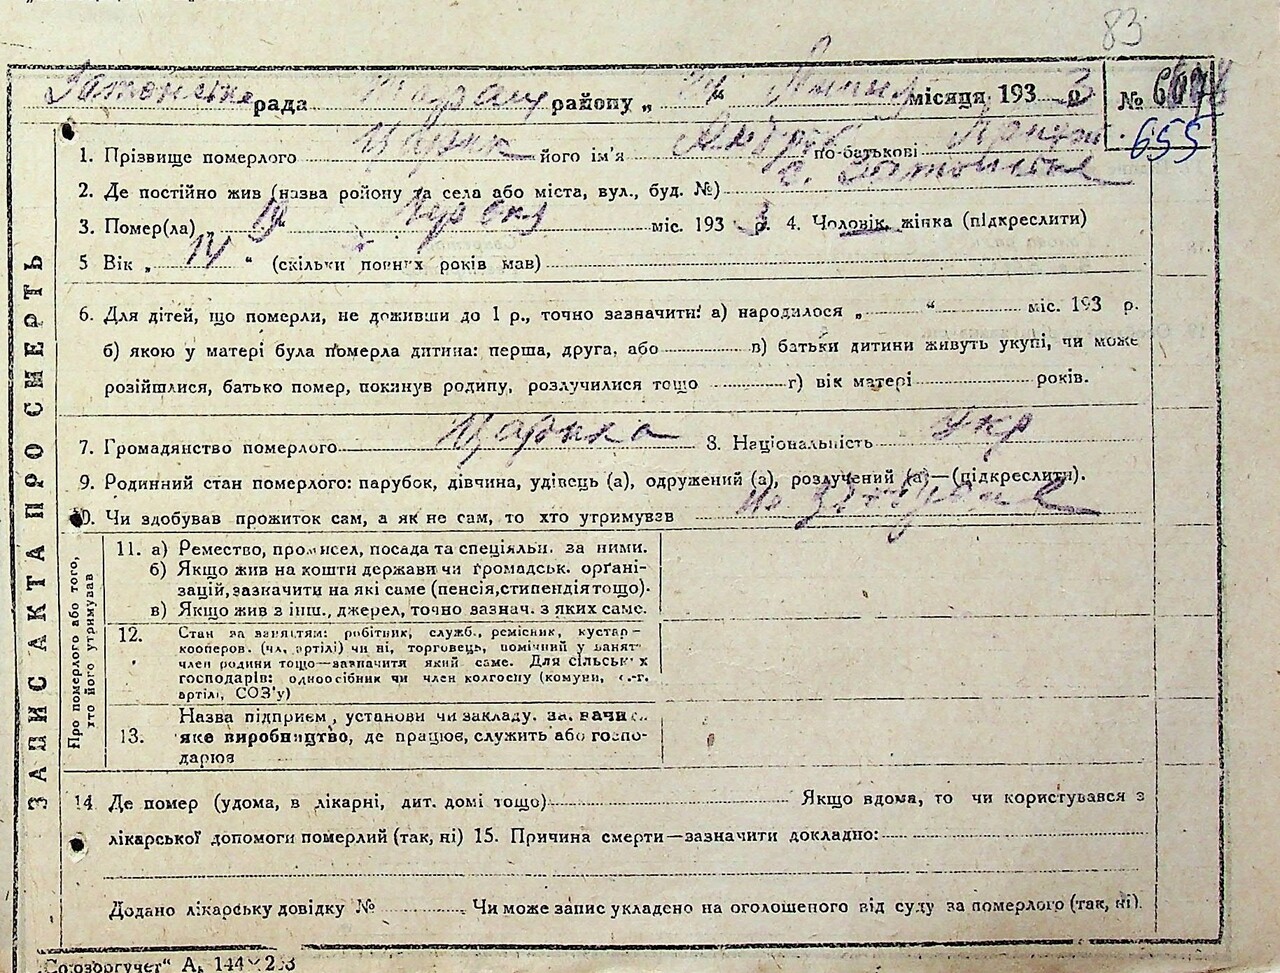 83
рада району „ “ місяця 193 3 р № 607
655
1. Прізвище померлого його ім'я Андрій по-батькові
2. Де постійно жив (назва району та села або міста, вул., буд. №) с.
3. Помер(ла) „ “ міс. 193 3 р. 4. Чоловік, жінка (підкреслити)
5 Вік „ 14 “ (скільки повних років мав)
6. Для дітей, що померли, не доживши до 1 р., точно зазначити: а) народилося „ “ міс. 193 р.
б) якою у матері була померла дитина: перша, друга, або в) батьки дитини живуть укупі, чи може
розійшлися, батько помер, покинув родипу, розлучилися тощо г) вік матері років.
7. Громадянство померлого 8. Національність укр
9. Родинний стан померлого: парубок, дівчина, удівець (а), одружений (а), розлучений (а)—(підкреслити).
10. Чи здобував прожиток сам, а як не сам, то хто утримував не
ЗАПИС АКТА ПРО СМЕРТЬ
Про померлого або того,
хто його утримував
11. а) Ремество, промисел, посада та спеціяльн. за ними.
б) Якщо жив на кошти держави чи громадськ. орґані-
зацій, зазначити на які саме (пенсія, стипендія тощо).
в) Якщо жив з інш., джерел, точно зазнач. з яких саме.
12. Стан за заняттям: робітник, служб., ремісник, кустар—
кооперов. (чл. артілі) чи ні, торговець, помічний у занят.
член родини тощо—зазначити який саме. Для сільськ х
господарів: одноосібник чи член колгоспу (комуни, с.-г.
артілі, СОЗ'у)
13. Назва підприєм, установи чи закладу, зазначис..
яке виробництво, де працює, служить або госпо-
дарює
14 Де помер (удома, в лікарні, дит. домі тощо) Якщо вдома, то чи користувався з
лікарської допомоги померлий (так, ні) 15. Причина смерти—зазначити докладно:
Додано лікарську довідку № Чи може запис укладено на оголошеного від суду за померлого (так, ні).
„Союзоргучет“